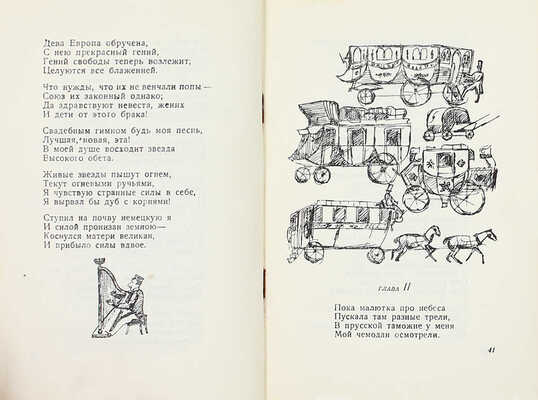 Дева Европа обручена,
С нею прекрасный гений,
Гений свободы теперь возлежит;
Целуются все блаженней.
Что нужды, что их не венчали попы —
Союз их законный однако;
Да здравствуют невеста, жених
И дети от этого брака!
Свадебным гимном будь моя песнь,
Лучшая, новая, эта!
В моей душе восходит звезда
Высокого обета.
Живые звезды пышут огнем,
Текут огневыми ручьями,
Я чувствую странные силы в себе,
Я вырвал бы дуб с корнями!
Ступил на почву немецкую я
И силой пронизан земною—
Коснулся матери великан,
И прибыло силы вдвое.
ГЛАВА II
Пока малютка про небеса
Пускала там разные трели,
В прусской таможне у меня
Мой чемодан осмотрели.
41